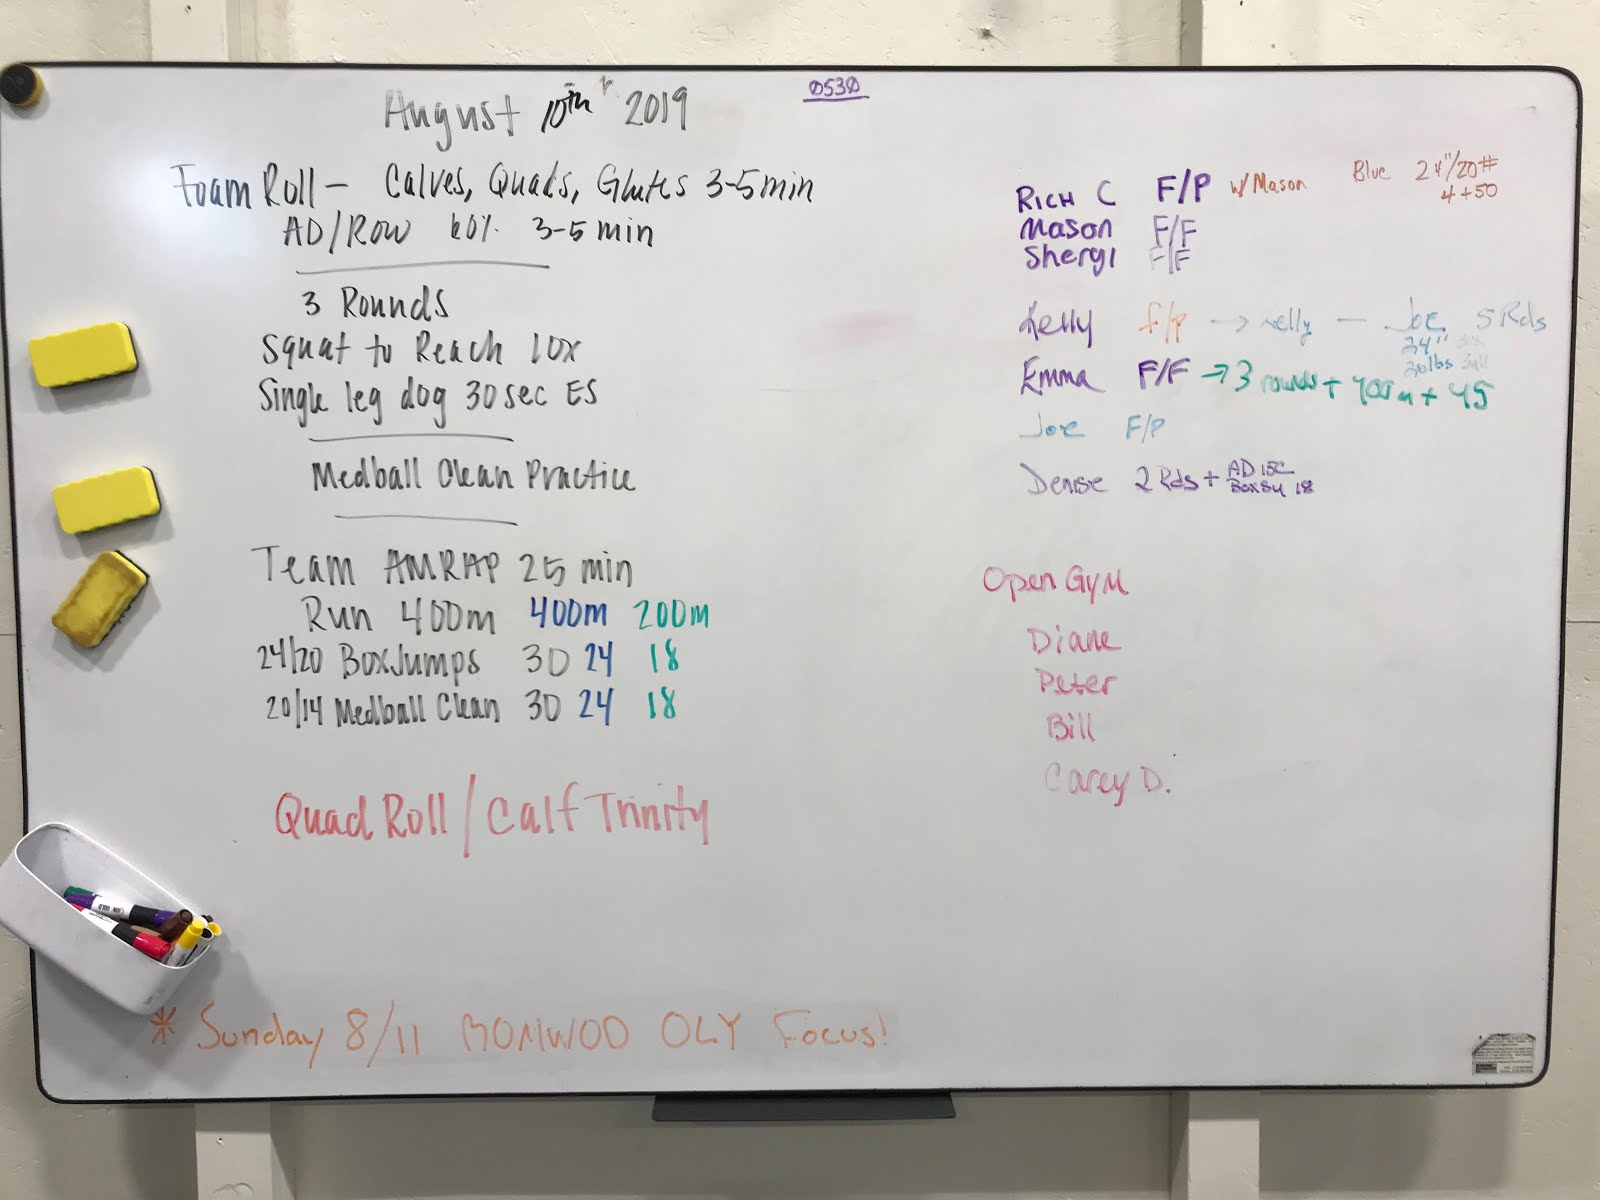 August 10th 2019
Foam Roll - Calves, Quads, Glutes 3-5 min
AD/Row 60% 3-5 min
3 Rounds
Squat to Reach 10x
Single leg dog 30 sec ES
Medball Clean Practice
Team AMRAP 25 min
Run 400m 400m 200m
24/20 Box Jumps 30 24 18
20/14 Medball Clean 30 24 18
Quad Roll / Calf Trinity
* Sunday 8/11 ROMWOD OLY Focus!
0530
Rich C F/P w/ Mason Blue 24"/20#
4+50
Mason F/F
Sheryl F/F
Kelly F/P → Kelly — Joe 5 Rds
24"
30lbs
Emma F/F → 3 rounds + 400m + 45
Joe F/P
Denise 2 Rds + AD 15C
Box SU 18
Open Gym
Diane
Peter
Bill
Carey D.